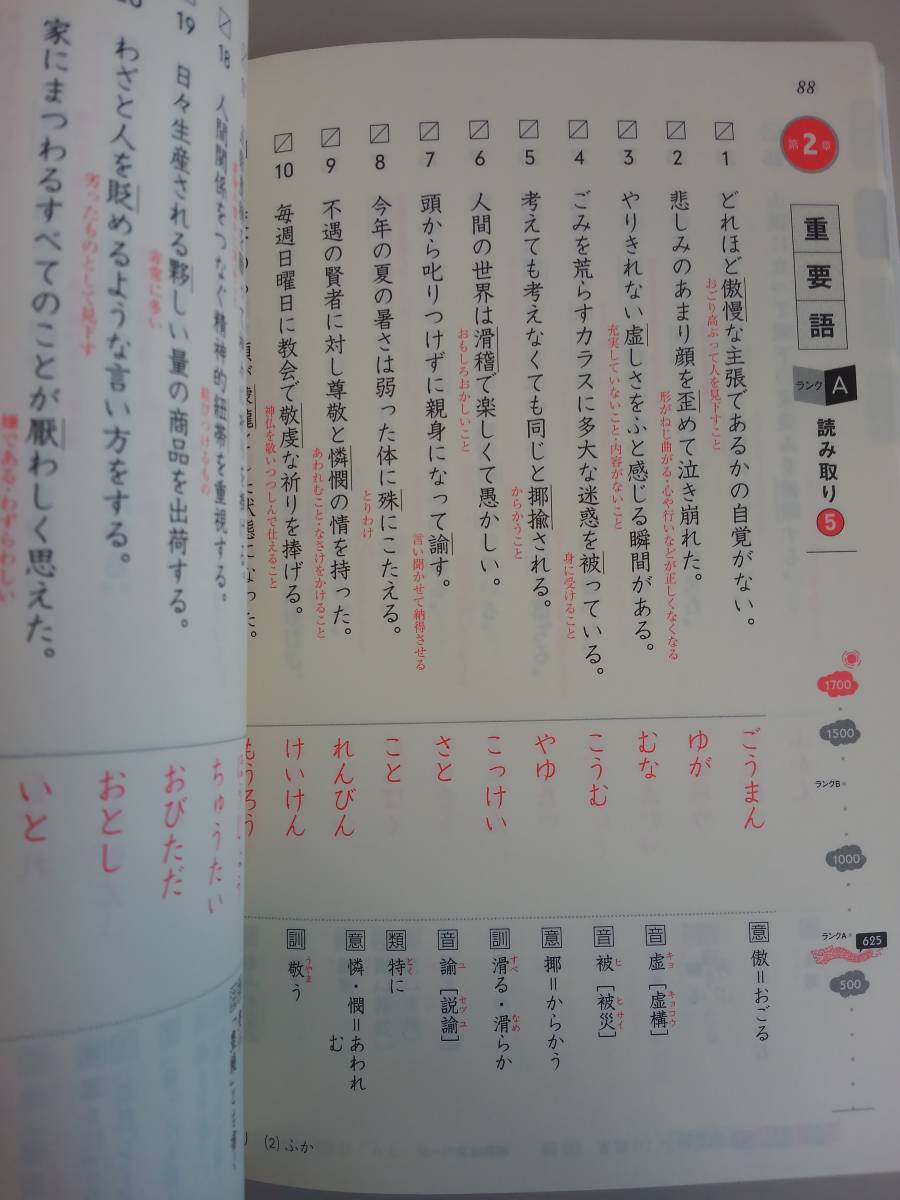 88
第2章
重要語
ランクA
読み取り5
1
どれほど傲慢な主張であるかの自覚がない。
おごり高ぶって人を見下すこと
ごうまん
意 傲=おごる
2
悲しみのあまり顔を歪めて泣き崩れた。
形がねじ曲がる・心や行いなどが正しくなくなる
ゆが
3
やりきれない虚しさをふと感じる瞬間がある。
充実していないこと・内容がないこと
むな
音 虚[虚構]
キョ
キョコウ
4
ごみを荒らすカラスに多大な迷惑を被っている。
身に受けること
こうむ
音 被[被災]
ヒ
ヒサイ
5
考えても考えなくても同じと揶揄される。
からかうこと
やゆ
意 揶=からかう
6
人間の世界は滑稽で楽しくて愚かしい。
おもしろおかしいこと
こっけい
訓 滑る・滑らか
すべ
なめ
7
頭から叱りつけずに親身になって諭す。
言い聞かせて納得させる
さと
音 諭[説諭]
ユ
セツユ
8
今年の夏の暑さは弱った体に殊にこたえる。
とりわけ
こと
類 特に
とく
9
不遇の賢者に対し尊敬と憐憫の情を持った。
あわれむこと・なさけをかけること
れんびん
意 憐・憫=あわれむ
10
毎週日曜日に教会で敬虔な祈りを捧げる。
神仏を敬いつつしんで仕えること
けいけん
訓 敬う
うやま
もうろう
(2)ふか
1700
1500
ランクB
1000
ランクA
625
500
18
人間関係をつなぐ精神的紐帯を重視する。
結びつけるもの
ちゅうたい
19
日々生産される夥しい量の商品を出荷する。
非常に多い
おびただ
わざと人を貶めるような言い方をする。
劣ったものとして見下す
おとし
家にまつわるすべてのことが厭わしく思えた。
嫌である・わずらわしい
いと